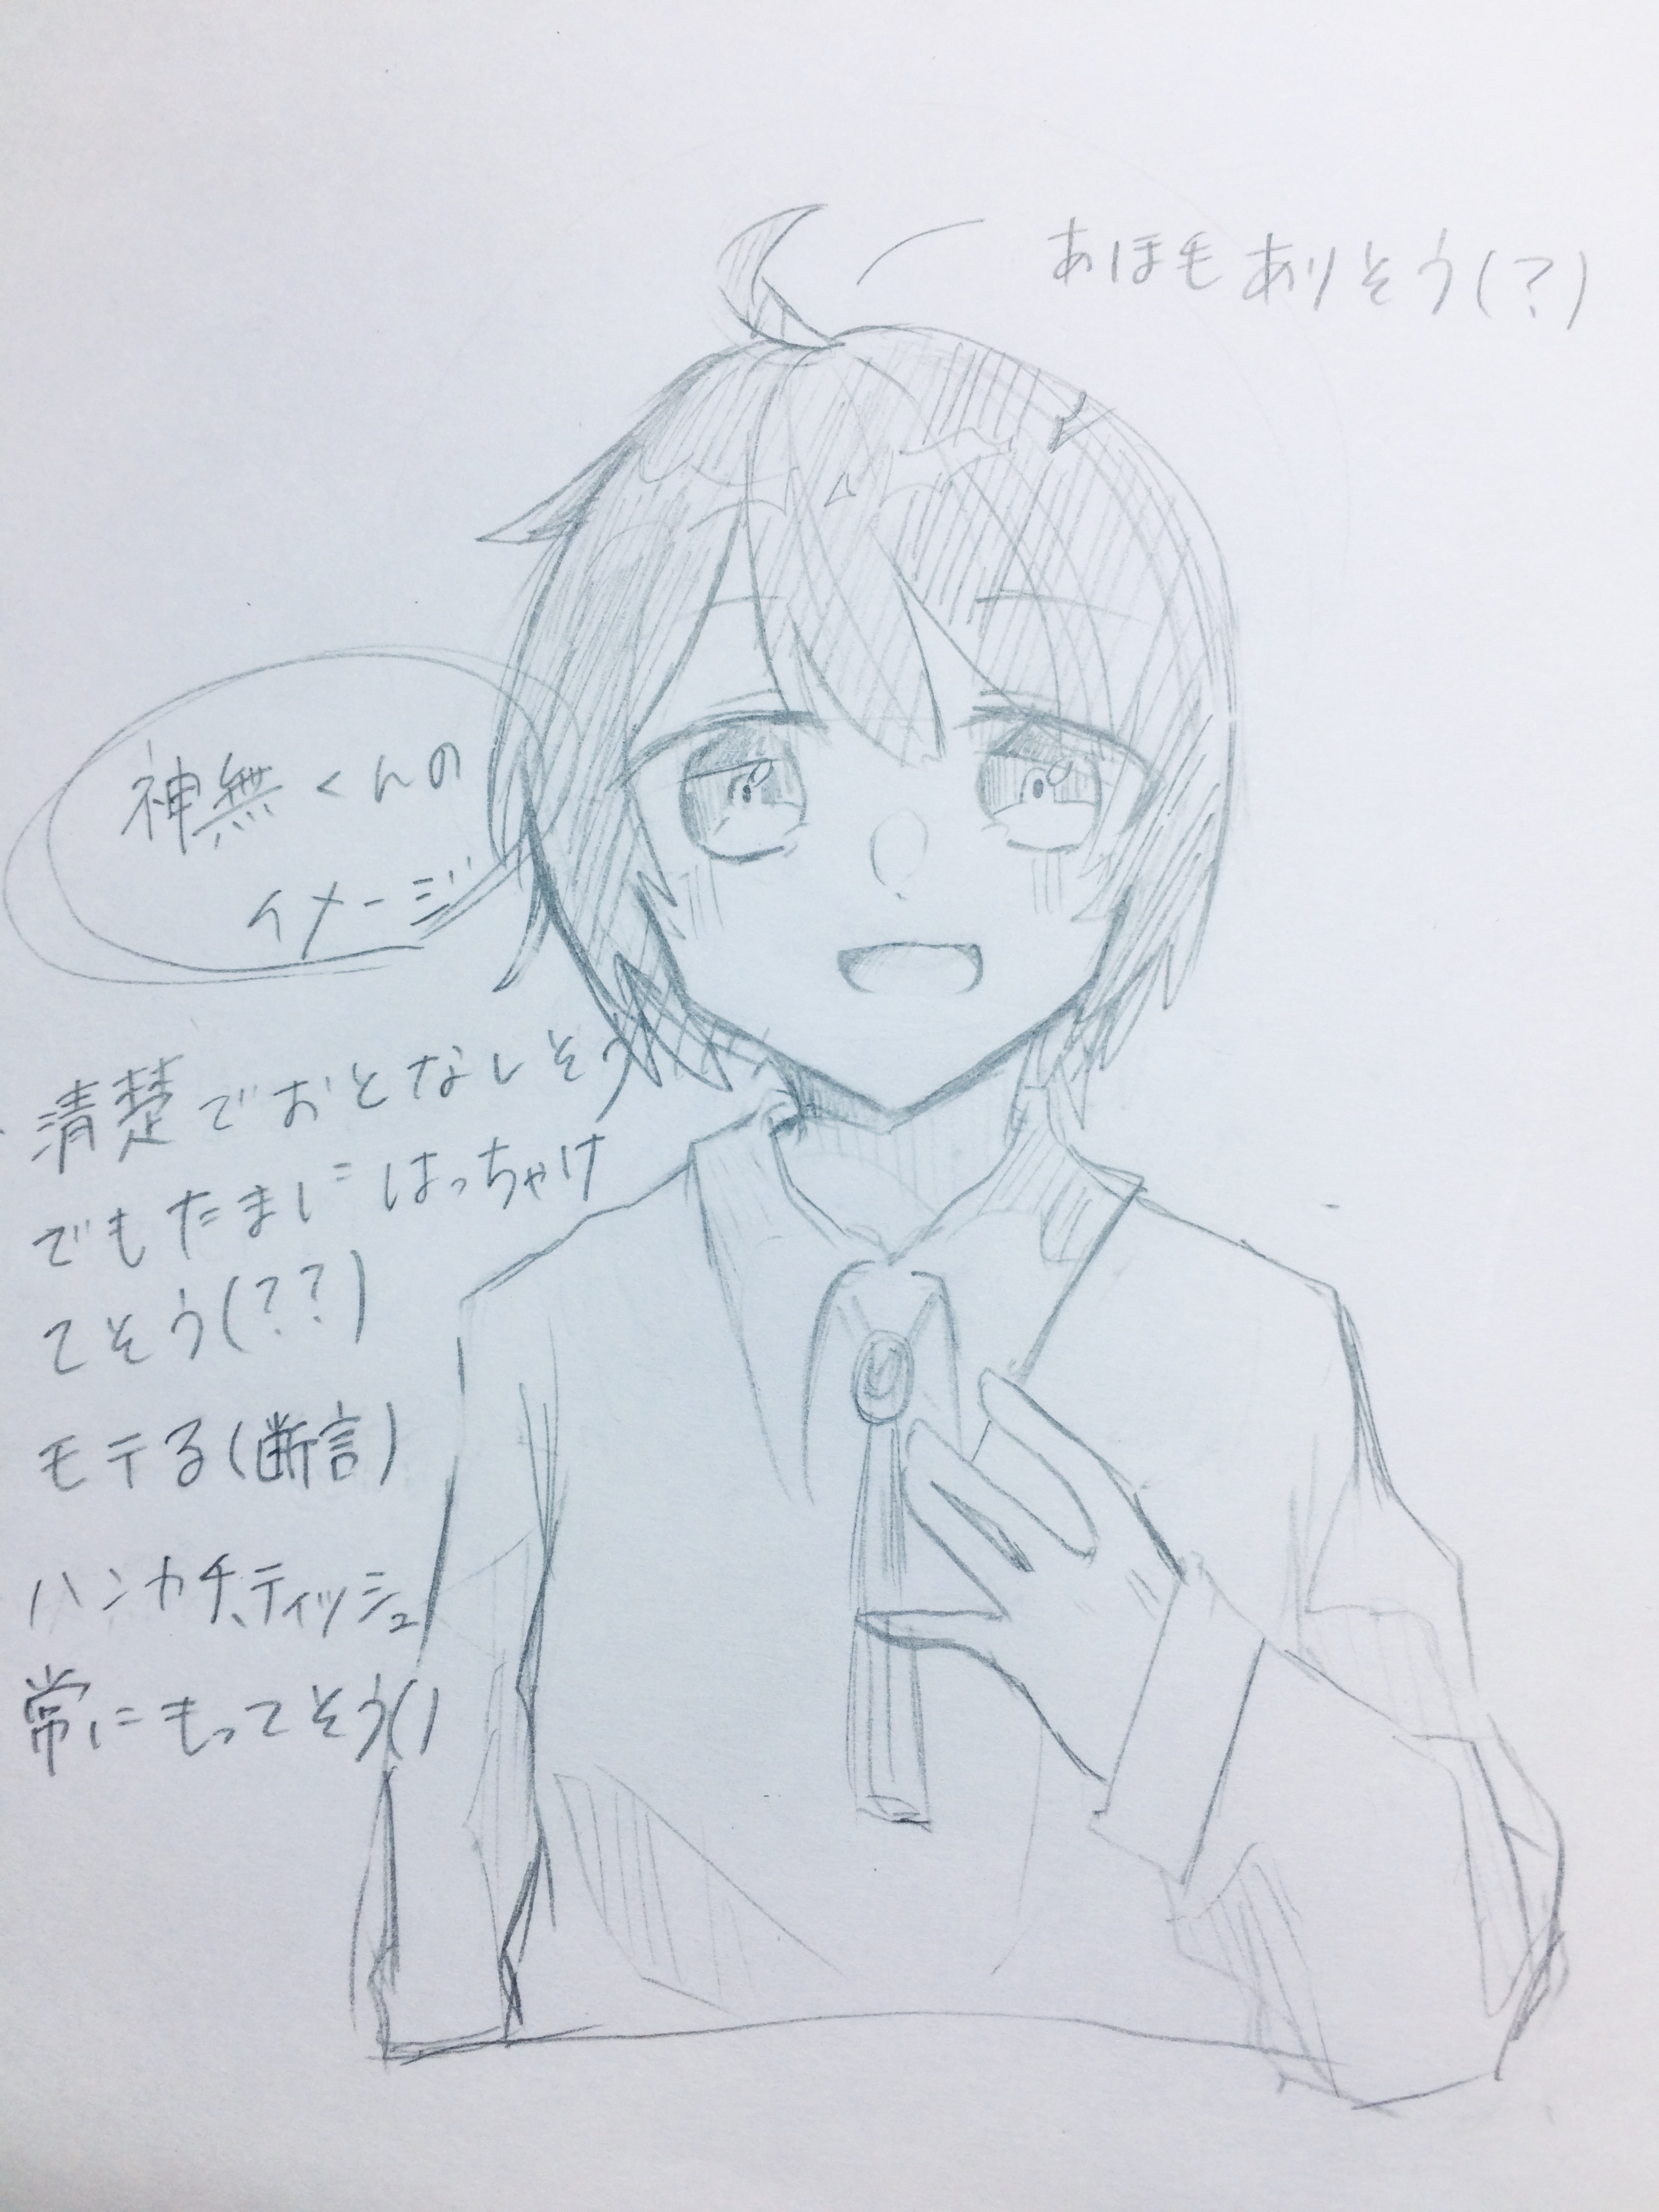 あほもありそう(?)
神無くんの
イメージ
清楚でおとなしそう
でもたまにはっちゃけ
てそう(??)
モテる(断言)
ハンカチ、ティッシュ
常にもってそう()